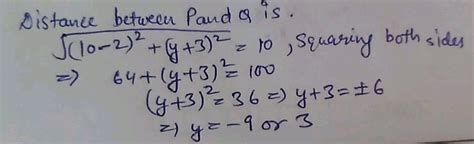 Distance between P and Q is.
√(10-2)² + (y+3)² = 10, Squaring both sides
=> 64 + (y+3)² = 100
(y+3)² = 36 => y+3 = ±6
=> y = -9 or 3